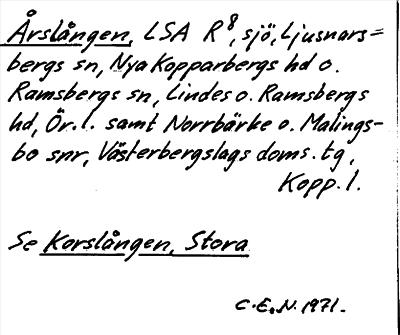 Årslången, LSA R8, sjö, Ljusnars=
bergs sn, Nya Kopparbergs hd o.
Ramsbergs sn, Lindes o. Ramsbergs
hd, Ör. l. samt Norrbärke o. Malings-
bo snr, Västerbergslags doms. tg,
Kopp. l.
Se Korslången, Stora
C.E.N. 1971.